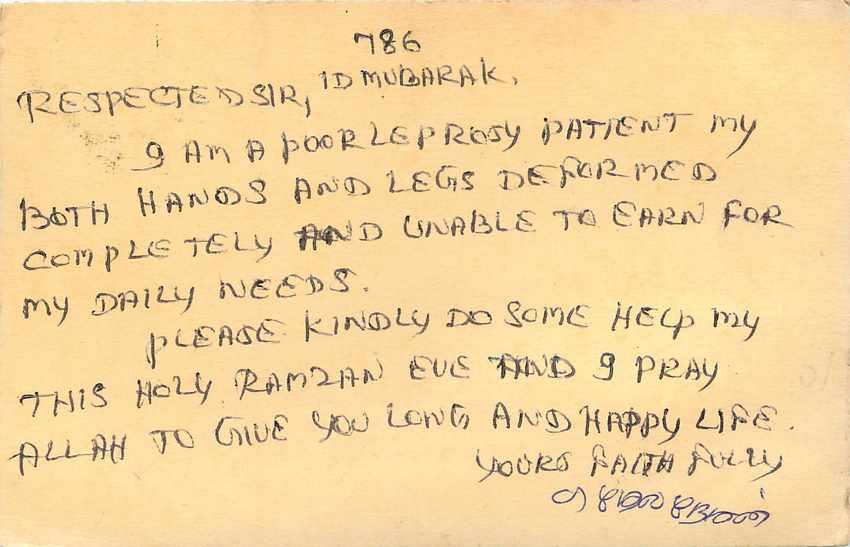 786
ID MUBARAK.
RESPECTED SIR,
I AM A POOR LEPROSY PATIENT MY
BOTH HANDS AND LEGS DEFORMED
COMPLETELY AND UNABLE TO EARN FOR
MY DAILY NEEDS.
PLEASE KINDLY DO SOME HELP MY
THIS HOLY RAMZAN EVE AND I PRAY
ALLAH TO GIVE YOU LONG AND HAPPY LIFE.
YOURS FAITH FULLY